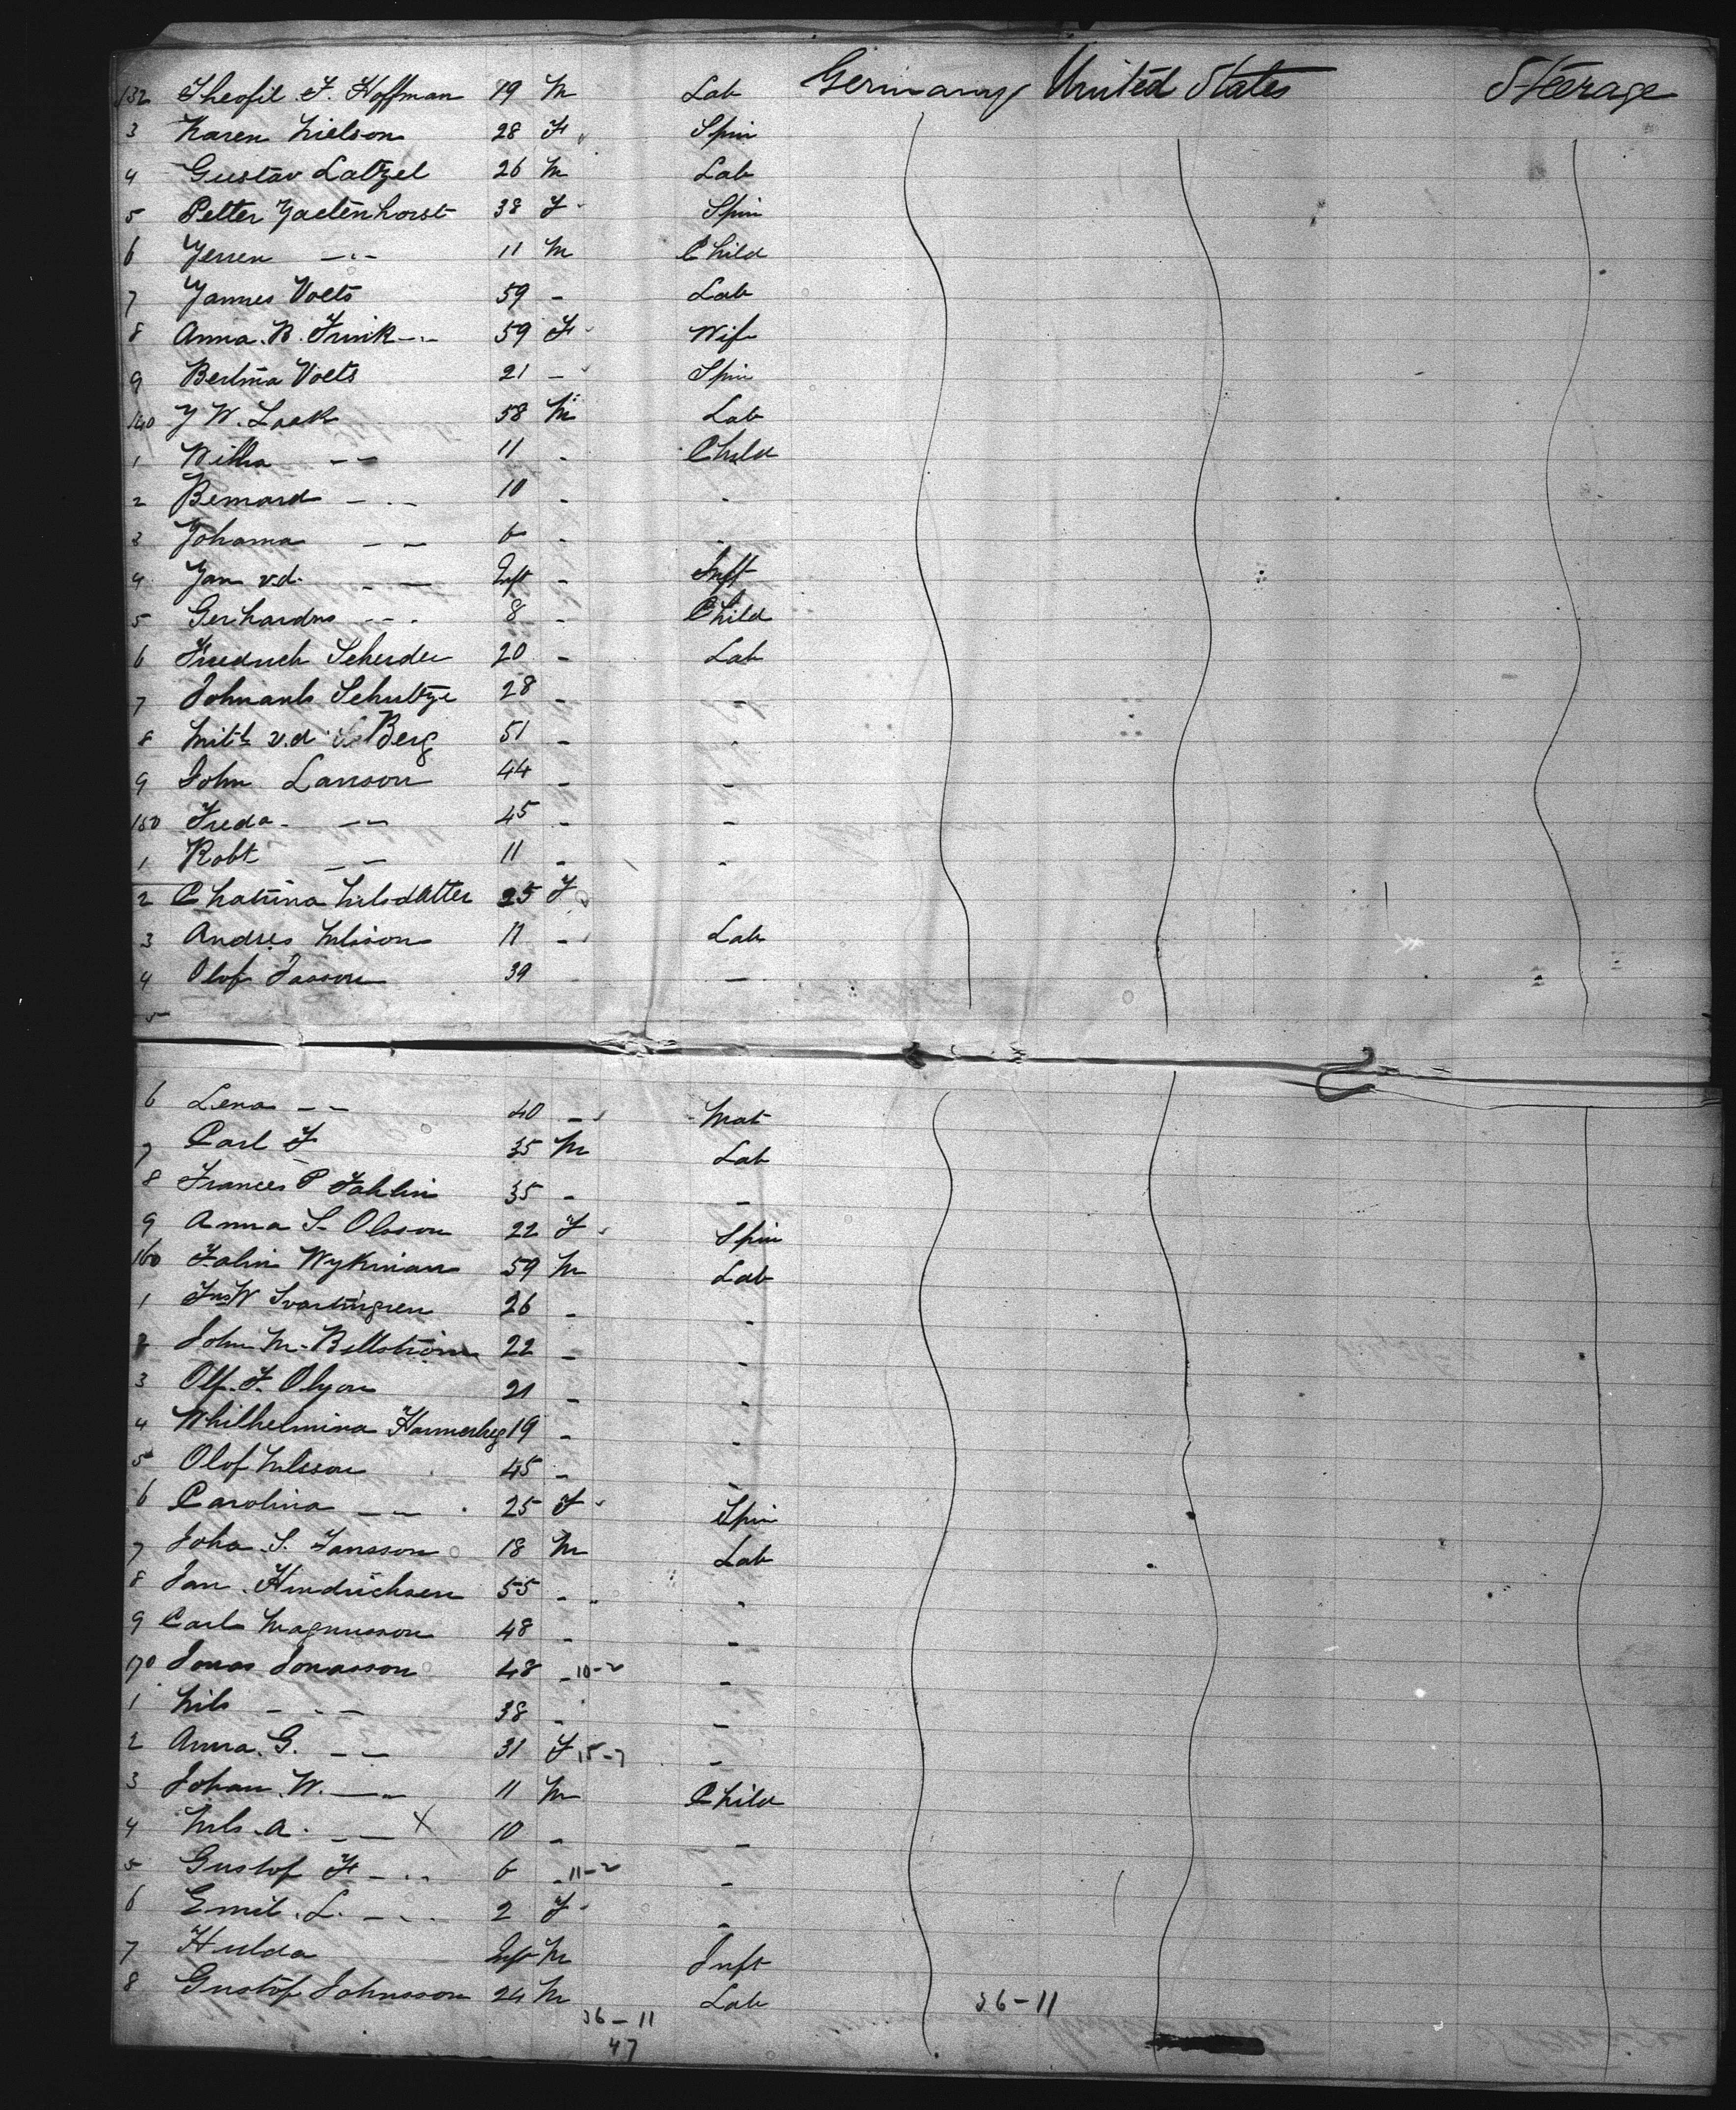 132 Theofil F. Hoffman 19 M Lab Germany United States Steerage
3 Karen Nielson 28 F Spin
4 Gustav Latzel 26 M Lab
5 Petter 38 F Spin
6 11 M Child
7 Yannes Voets 59 - Lab
8 Anna. B. Frink -..- 59 F Wife
9 Voets 21 - Spin
140 Y W. Laak 58 M Lab
1 Willa -- 11 - Child
2 Bernard -.- 10 - -
3 Johanna -- 6 - -
4 Jan v.d. -- Inft - Inft
5 Gerhardus -- 8 - Child
6 Friedrich 20 - Lab
7 Schultze 28 - -
8 v.d. Berg 51 - -
9 John Larsson 44 - -
150 Freda -- 45 - -
1 Robt -- 11 - -
2 Chatrina Nilsdatter 25 F
3 Andres Nilsson 11 - Lab
4 Olof 39 -
5
6 Lena -- 40 - Mat
7 Carl F 35 M Lab
8 Frances P 35 - -
9 Anna S. Olsson 22 F Spin
160 Wykman 59 M Lab
1 Jns W 26 - -
2 John M. Bellström 22 - -
3 Olf. F. 21 - -
4 Whilhelmina 19 - -
5 Olof Nilsson 45 - -
6 Carolina -- 25 F Spin
7 Joha. S. Jansson 18 M Lab
8 Jan Hindrichsen 55 - -
9 Carl Magnusson 48 - -
170 Jonas Jonasson 48 - 10-2 -
1 Nils -.- 38 - -
2 Anna. G. -- 31 F 15-7 -
3 Johan W. -- 11 M Child
4 Nils. A. -- X 10 - -
5 Gustof F -.. 6 - 11-2 -
6 Emil. L. -.. 2 F -
7 Hulda Inft M Inft
8 Gustof Johnsson 24 M Lab 36-11
36-11
47